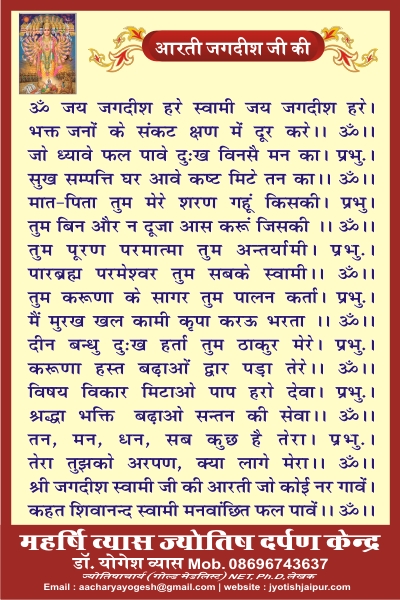 आरती जगदीश जी की
ॐ जय जगदीश हरे स्वामी जय जगदीश हरे।
भक्त जनों के संकट क्षण में दूर करे।। ॐ।।
जो ध्यावे फल पावे दुःख विनसै मन का। प्रभु.।
सुख सम्पत्ति घर आवे कष्ट मिटे तन का।। ॐ।।
मात-पिता तुम मेरे शरण गहूं किसकी। प्रभु।
तुम बिन और न दूजा आस करूं जिसकी ।। ॐ।।
तुम पूरण परमात्मा तुम अन्तर्यामी। प्रभु.।
पारब्रह्म परमेश्वर तुम सबके स्वामी।। ॐ।।
तुम करूणा के सागर तुम पालन कर्ता। प्रभु.।
मैं मुरख खल कामी कृपा करऊ भरता ।। ॐ।।
दीन बन्धु दुःख हर्ता तुम ठाकुर मेरे। प्रभु.।
करूणा हस्त बढ़ाओं द्वार पड़ा तेरे।। ॐ।।
विषय विकार मिटाओ पाप हरो देवा। प्रभु.।
श्रद्धा भक्ति बढ़ाओ सन्तन की सेवा।। ॐ।।
तन, मन, धन, सब कुछ है तेरा। प्रभु.।
तेरा तुझको अरपण, क्या लागे मेरा।। ॐ।।
श्री जगदीश स्वामी जी की आरती जो कोई नर गावें।
कहत शिवानन्द स्वामी मनवांछित फल पावें।। ॐ।।
महर्षि व्यास ज्योतिष दर्पण केन्द्र
डॉ. योगेश व्यास Mob. 08696743637
ज्योतिषाचार्य (गोल्ड मेडलिस्ट) NET, Ph.D, लेखक
Email : aacharyayogesh@gmail.com | website : jyotishjaipur.com